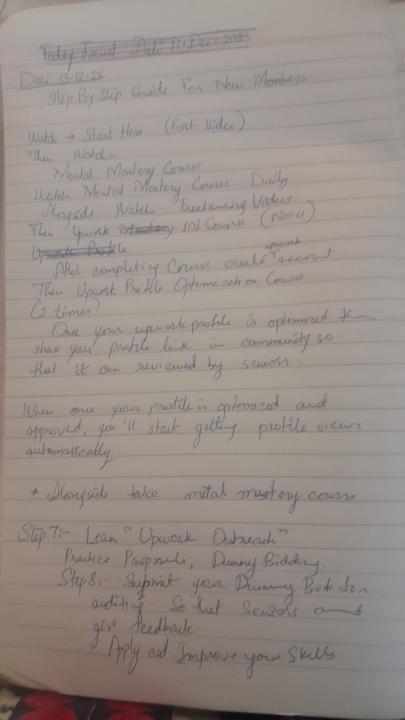 Date 13-12-26
Step By Step Guide For New Members
Watch → Start Here (First Video)
Then Watch
Mental Mastery Course
Watch Mental Mastery Course Daily
Alongside Watch Freelancing Videos
Then Upwork 101 Course (No-1)
Upwork Profile
After completing Course create upwork account
Then Upwork Profile Optimization Course
(2 times)
Once your upwork profile is optimized then
share your profile link in community so
that it can reviewed by seniors.
When once your profile is optimized and
approved, you'll start getting profile views
automatically
* Alongside take mental mastery course
Step 7:- Learn "Upwork Outreach"
Practice Proposals, Dummy Bidding.
Step 8:- Submit your Dummy Bids for
auditing. So that Seniors
give feedback.
Apply and Improve your Skills